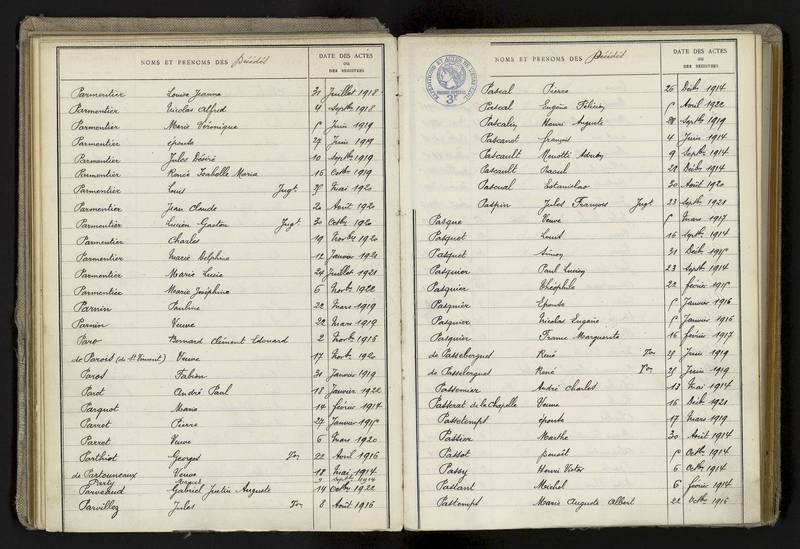 NOMS ET PRENOMS DES Décédés
DATE DES ACTES
OU
DES REGISTRES
Parmentier Louise Jeanne 31 Juillet 1918
Parmentier Nicolas Alfred 4 Septbre 1918
Parmentier Marie Véronique 5 Juin 1919
Parmentier épouse 29 Juin 1919
Parmentier Jules Désiré 10 Septbre 1919
Parmentier Renée Isabelle Maria 16 Octbre 1919
Parmentier Louis Jugt Mai 1920
Parmentier Jean Claude 2 Août 1920
Parmentier Lucien Gaston Jugt 30 Octbre 1920
Parmentier Charles 19 Novbre 1920
Parmentier Marie Delphine 12 Janvier 1921
Parmentier Marie Lucie 24 Juillet 1921
Parmentier Marie Joséphine 6 Novbre 1922
Parnin Pauline 22 Mars 1919
Parnin Veuve 22 Mars 1919
Paro Bernard Clément Edouard 2 Novbre 1916
de Parois (de St Vincent) Veuve 17 Novbre 1920
Paros Fabien 31 Janvier 1919
Parot André Paul 18 Janvier 1922
Parquot Marie 14 février 1914
Parret Pierre 27 Janvier 1915
Parret Veuve 6 Mars 1920
Parthiot Georges Ton 22 Avril 1916
de Partouneaux Veuve 18 Mai 1914
Party Septbre 1914
Parvebud Gabriel Justin Auguste 14 Octbre 1922
Parvillez Jules Ton 8 Août 1916
NOMS ET PRENOMS DES Décédés
DATE DES ACTES
OU
DES REGISTRES
3F
Pascal Pierre 26 Décbre 1914
Pascal Eugène 5 Avril 1922
Pascalin Henri Auguste Septbre 1919
Pascanet François 4 Juin 1914
Pascault Menotti 9 Septbre 1914
Pascault Raoul 28 Décbre 1914
Pascual Estanislao 30 Août 1920
Paspin Jules François Jugt 23 Septbre 1921
Pasque Veuve 5 Mars 1917
Pasquet Louis 16 Septbre 1914
Pasquet Simon 31 Décbre 1915
Pasquier Paul Lucien 23 Septbre 1914
Pasquier Théophile 22 février 1915
Pasquier Epouse 5 Janvier 1916
Pasquier Nicolas Eugène 5 Janvier 1916
Pasquier Marguerite 16 février 1917
de Passebergues René Ton 21 Juin 1919
de Passelergues René Ton 21 Juin 1919
Passemier André Charles 13 Mai 1914
Passerat de la Chapelle Veuve 16 Décbre 1921
Passetemps épouse 17 Mars 1919
Passier Marthe 30 Août 1914
Passot Benoît 5 Octbre 1914
Passy Henri Victor 6 Octbre 1914
Pastant Michel 6 février 1914
Pastemps Marie Auguste Albert 22 Octbre 1916